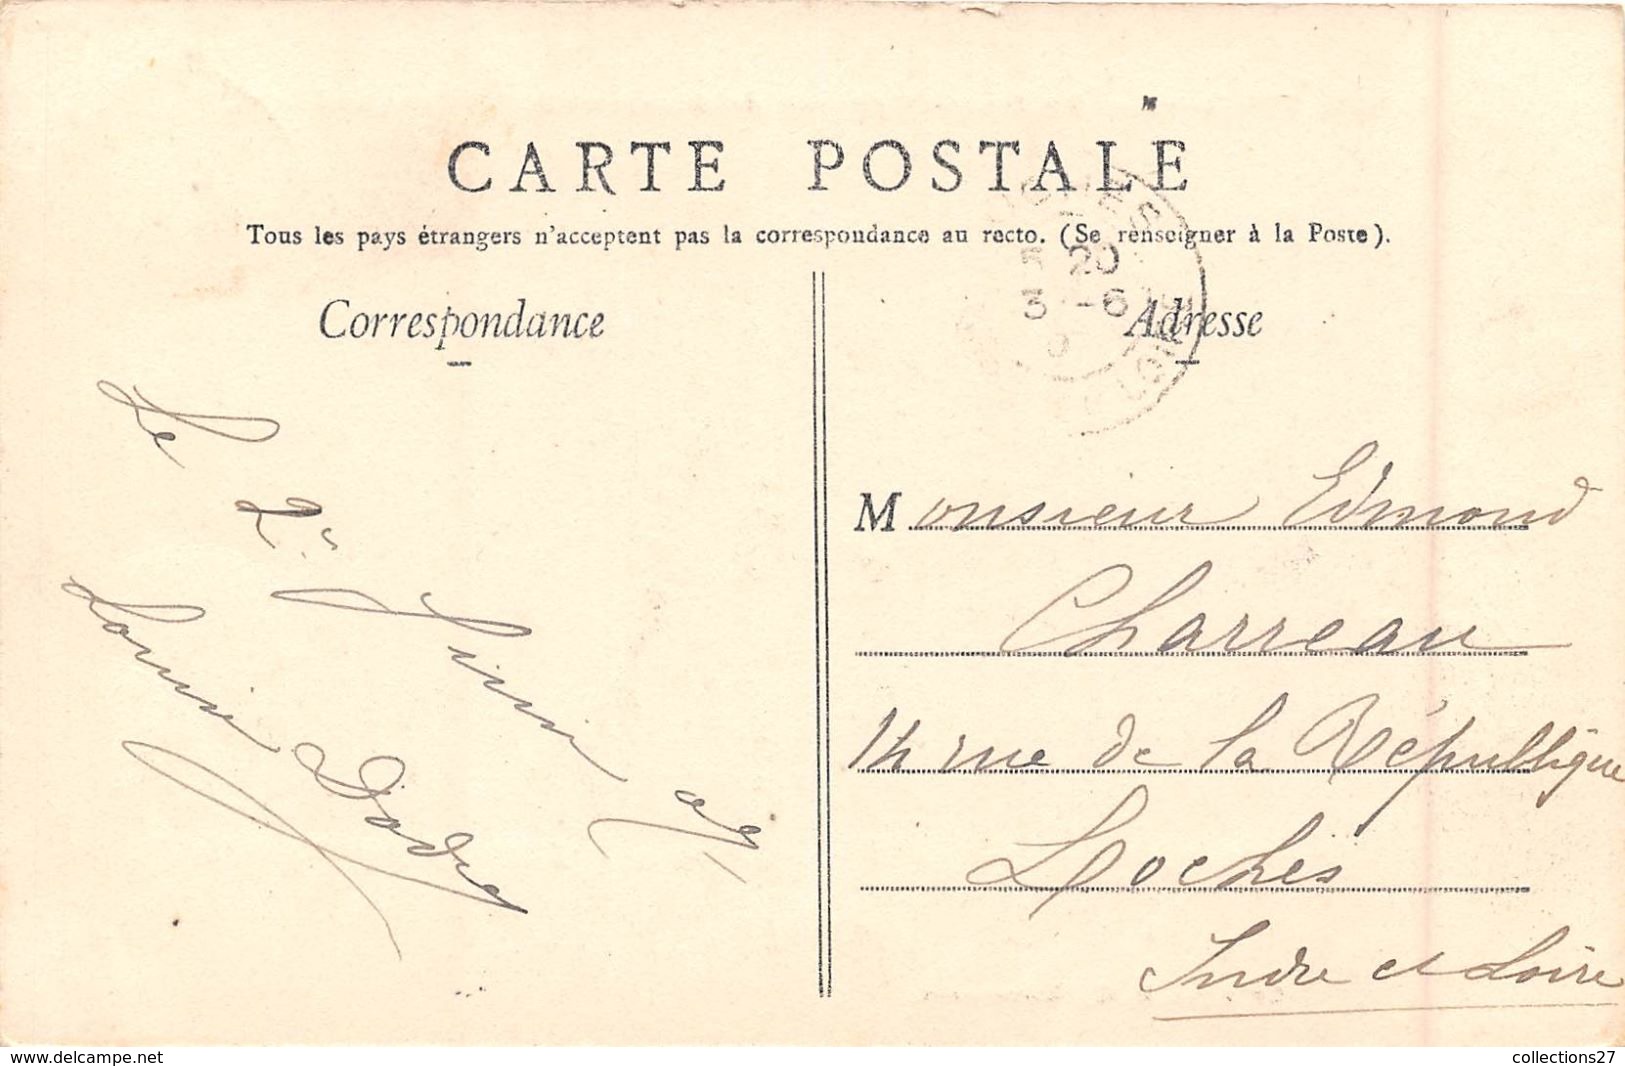 CARTE POSTALE
Tous les pays étrangers n'acceptent pas la correspondance au recto. (Se renseigner à la Poste).
Correspondance
Le 2 Juin 07
Louise
Adresse
5 20
3 -6
Monsieur Edmond
Charreau
14 rue de la République
Loches
Indre et Loire
www.delcampe.net
collections27